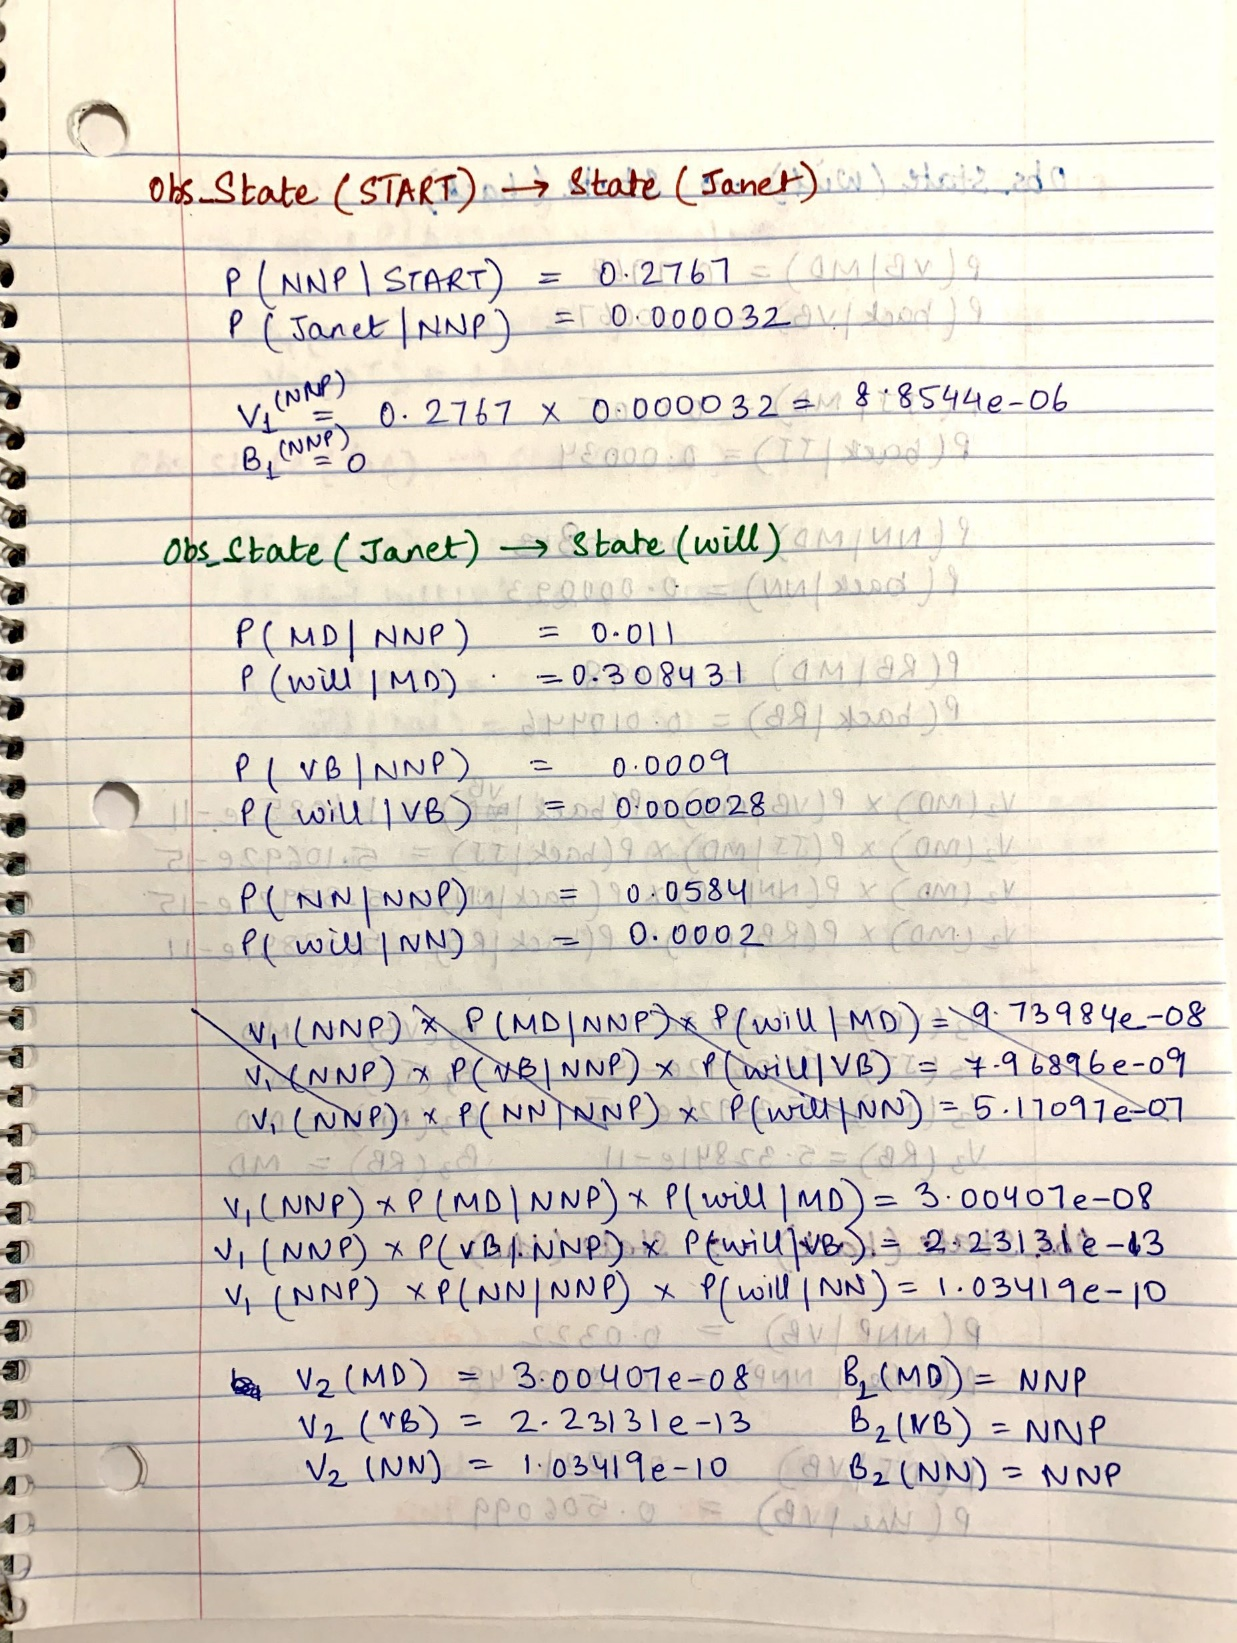 Obs_State (START) → State (Janet)
P (NNP | START) = 0.2767
P (Janet | NNP) = 0.000032
V₁(NNP) = 0.2767 x 0.000032 = 8.8544e-06
B₁(NNP) = 0
Obs_State (Janet) → State (will)
P( MD | NNP) = 0.011
P (will | MD) = 0.308431
P ( VB | NNP) = 0.0009
P( will | VB) = 0.000028
P( NN | NNP) = 0.0584
P( will | NN) = 0.0002
V₁ (NNP) x P(MD|NNP) x P(will | MD) = 9.73984e-08
V₁ (NNP) x P(VB|NNP) x P(will|VB) = 7.96896e-09
V₁ (NNP) x P(NN|NNP) x P(will|NN) = 5.17097e-07
V₁ (NNP) x P(MD|NNP) x P(will | MD) = 3.00407e-08
V₁ (NNP) x P(VB|NNP) x P(will|VB) = 2.23131e-13
V₁ (NNP) x P(NN|NNP) x P(will|NN) = 1.03419e-10
V₂ (MD) = 3.00407e-08 B₂(MD) = NNP
V₂ (VB) = 2.23131e-13 B₂(VB) = NNP
V₂ (NN) = 1.03419e-10 B₂(NN) = NNP